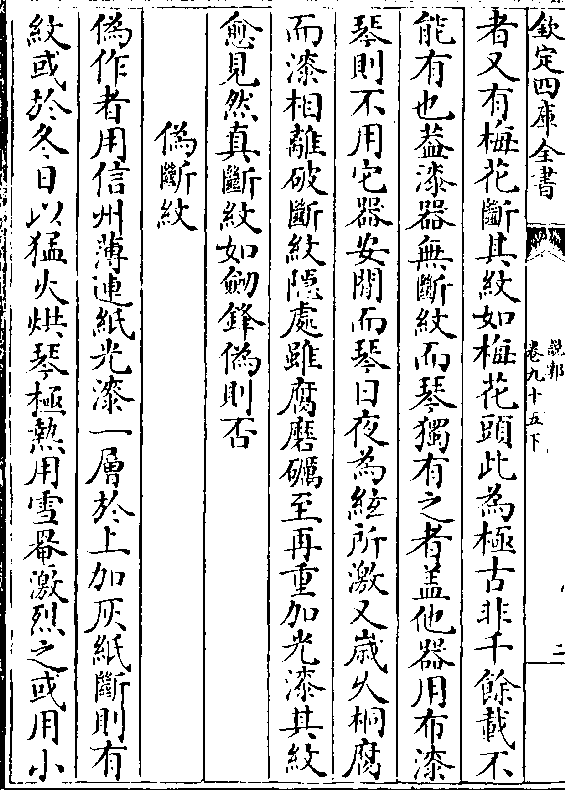 欽定四庫全書
說郛
卷九十五下
二
者又有梅花斷其紋如梅花頭此為極古非千餘載不
能有也葢漆器無斷紋而琴獨有之者葢他器用布漆
琴則不用它器安閒而琴日夜為絃所激又歳久桐腐
而漆相離破斷紋隠處雖腐磨礪至再重加光漆其紋
愈見然真斷紋如劒鋒偽則否
偽斷紋
偽作者用信州薄連紙光漆一層於上加灰紙斷則有
紋或於冬日以猛火烘琴極熱用雪罨激烈之或用小